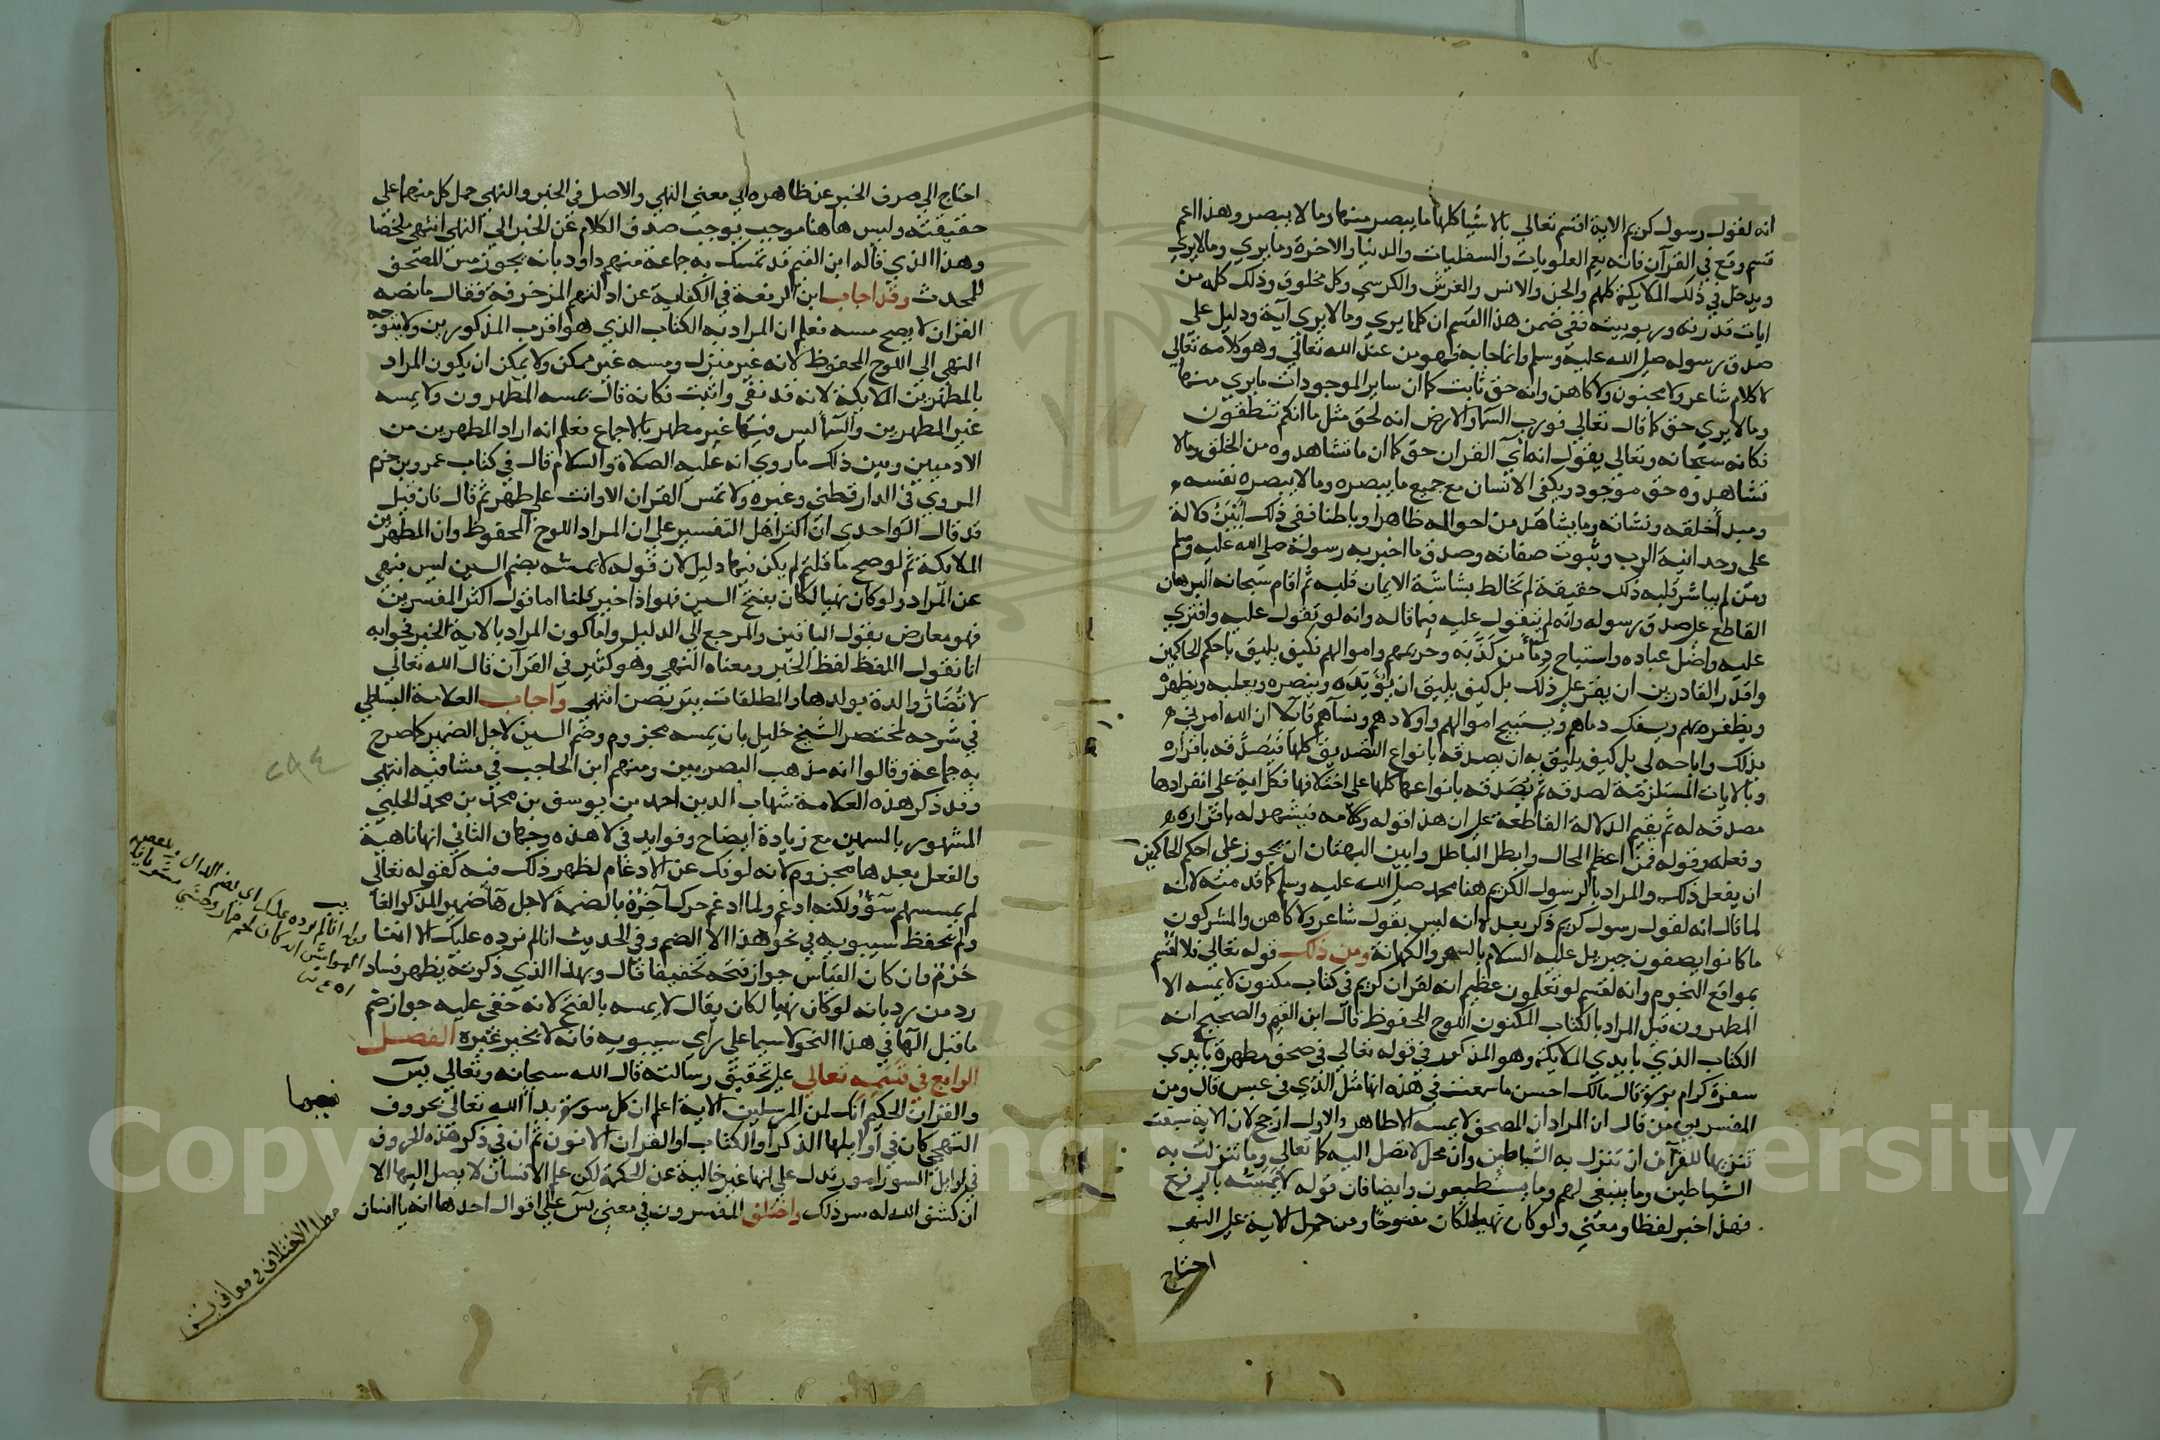 انه لقول رسول كريم الاية اقسم تعالي بالاشيا كلها ما يبصر منها وما لا يبصر وهذا اعم
قسم وقع في القرآن فانه يعم العلويات والسفليات والدنيا والاخرة وما يري وما لا يري
ويدخل في ذلك الملايكة كلهم والجن والانس والعرش والكرسي وكل مخلوق وذلك كله من
ايات قدرته وربوبيته ففي ضمن هذا القسم ان كلما يري وما لا يري آية ودليل علي
صدق رسوله صلي الله عليه وسلم وان ما جا به فهو من عند الله تعالي وهو كلامه تعالي
لا كلام شاعر ولا مجنون ولا كاهن وانه حق ثابت كما ان ساير الموجودات ما يري منها
وما لا يري حق كما قال تعالي فورب السما والارض انه لحق مثل ما انكم تنطقون
فكانه سبحانه وتعالي يقول انه اي القران حق كما ان ما تشاهدوه من الخلق وما لا
تشاهدوه حق موجود ويكفي الانسان مع جميع ما يبصره وما لا يبصره نفسه
ومبدأ خلقه ونشاته وما يشاهد من احواله ظاهرا وباطنا ففي ذلك ابين دلالة
علي وحدانية الرب وثبوت صفاته وصدق ما اخبر به رسوله صلي الله عليه وسلم
ومن لم يباشر قلبه ذلك حقيقة لم تخالط بشاشة الايمان قلبه ثم اقام سبحانه البرهان
القاطع علي صدق رسوله وانه لم يتقول عليه فيما قاله وانه لو تقول عليه وافتري
عليه واضل عباده واستباح دما من كذبه وحريمهم واموالهم فكيف يليق باحكم الحاكمين
واقدر القادرين ان يقر علي ذلك بل كيف يليق ان يؤيده وينصره ويعليه ويظهره
ويظفره بهم ويسفك دماهم ويستبيح اموالهم واولادهم ونسآهم قايلا ان الله امرني
بذلك واباحه لي بل كيف يليق به ان يصدقه بانواع التصديق كلها فيصدقه باقراره
وبالايات المستلزمة لصدقه ثم يصدقه بانواعها كلها علي اختلافها فكل اية علي انفرادها
مصدقه له ثم يقيم الدلالة القاطعة علي ان هذا قوله وكلامه فيشهد له باقراره
وفعله وقوله فمن اعظم المحال وابطل الباطل وابين البهتان ان يجوز علي احكم الحاكمين
ان يفعل ذلك والمراد بالرسول الكريم هنا محمد صلي الله عليه وسلم كما قدمته لانه
لما قال انه لقول رسول كريم ذكر بعده انه ليس بقول شاعر ولا كاهن والمشركون
ما كانوا يصفون جبريل عليه السلام بالسحر والكهانة ومن ذلك قوله تعالي فلا اقسم
بمواقع النجوم وانه لقسم لو تعلمون عظيم انه لقران كريم في كتاب مكنون لا يمسه الا
المطهرون قيل المراد بالكتاب المكنون اللوح المحفوظ قال ابن القيم والصحيح انه
الكتاب الذي بايدي الملايكة وهو المذكور في قوله تعالي في صحف مطهرة بايدي
سفرة كرام بررة قال مالك احسن ما سمعت في هذه انها مثل الذي في عبس قال ومن
المفسرين من قال ان المراد ان المصحف لا يمسه الا طاهر والاول ارجح لان الاية سيقت
تنزيها للقرآن ان تنزل به الشياطين وان محله لا تصل اليه كما تعالي وما تنزلت به
الشياطين وما ينبغي لهم وما يستطيعون وايضا فان قوله لا يمسه بالرفع
فهذا خبر لفظا ومعني ولو كان نهيا لكان مفتوحا ومن حمل الاية علي النهي
احتاج
احتاج الي صرف الخبر عن ظاهره الي معني النهي والاصل في الخبر والنهي حمل كل منهما علي
حقيقته وليس هاهنا موجب يوجب صدف الكلام عن الخبر الي النهي انتهي ملخصا
وهذا الذي قاله ابن القيم قد تمسك به جماعة منهم داود بانه يجوز مس المصحف
للمحدث وقد اجاب ابن الرفعة في الكفاية عن ادلتهم المزخرفة فقال ما نصه
القران لا يصح مسه فعلم ان المراد به الكتاب الذي هو اقرب المذكورين ولا يتوجه
النهي الي اللوح المحفوظ لانه غير منزل ومسه غير ممكن ولا يمكن ان يكون المراد
بالمطهرين الملايكة لانه قد نفي واثبت فكانه قال يمسه المطهرون ولا يمسه
غير المطهرين والسمآ ليس فيها غير مطهر بالاجماع فعلم انه اراد المطهرين من
الادميين وبين ذلك ما روي انه عليه الصلاة والسلام قال في كتاب عمرو بن حزم
المروي في الدارقطني وغيره ولا تمس القران الا وانت علي طهر ثم قال فان قيل
قد قال الواحدي ان اكثر اهل التفسير علي ان المراد اللوح المحفوظ وان المطهرين
الملايكة ثم لو صح ما قلتم لم يكن فيها دليل لان قوله لا يمسه بضم السين ليس بنهي
عن المراد ولو كان نهيا لكان بفتح السين فهو اذا خبر قلنا اما قول اكثر المفسرين
فهو معارض بقول الباقين والمرجع الي الدليل واما كون المراد بالاية الخبر فجوابه
انا نقول اللفظ لفظ الخبر ومعناه النهي وهو كثير في القرآن قال الله تعالي
لا تضار والدة بولدها والمطلقات يتربصن انتهي واجاب العلامة البساطي
في شرحه لمختصر الشيخ خليل بان يمسه مجزوم وضم السين لاجل الضمير كما صرح
به جماعة وقالوا انه مذهب البصريين ومنهم ابن الحاجب في شافيته انتهي
وقد ذكر هذه العلامة شهاب الدين احمد بن يوسف بن محمد بن محمد الحلبي
المشهور بالسمين مع زيادة ايضاح وفوايد في لا هذه وجهان الثاني انها ناهية
والفعل بعدها مجزوم لانه لو فك عن الادغام لظهر ذلك فيه كقوله تعالي
لم يمسسهم سؤ ولكنه ادغم ولما ادغم حرك آخره بالضمة لاجل هآ ضمير المذكر الغا
يب
ولم يحفظ سيبويه في نحو هذا الا الضم وفي الحديث انا لم نرده عليك الا اننا
حرم وان كان القياس جواز فتحه تخفيفا قال وبهذا الذي ذكرته يظهر فساد
رد من رد بانه لو كان نهيا لكان يقال لا يمسه بالفتح لانه خفي عليه جواز ضم
ما قبل الها في هذا النحو لا سيما علي راي سيبويه فانه لا يجيز غيره الفصل
الرابع في قسمه تعالي علي تحقيق رسالته قال الله سبحانه وتعالي يس
والقران الحكيم انك لمن المرسلين الاية اعلم ان كل سورة بدأ الله تعالي بحروف
التهجي كان في اوايلها الذكر او الكتاب او القران الا نون ثم ان في ذكر هذه الحروف
في اوايل السور امور تدل علي انها غير خالية عن الحكمة لكن علم الانسان لا يصل اليها الا
ان كشف الله له سر ذلك واختلف المفسرون في معني يس علي اقوال احدها انه يا انسان
قوله انا لم نرده عليك اي بضم الدال
مطلب الاختلاف في معاني يس